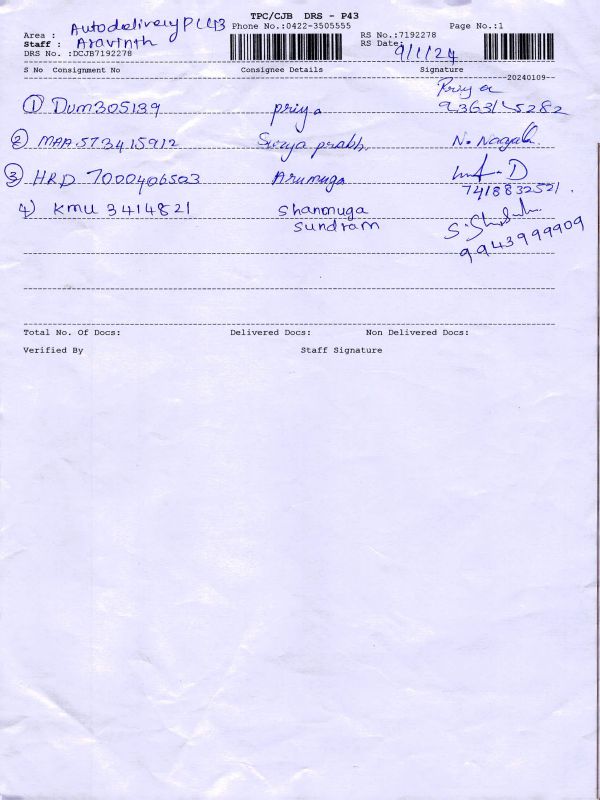 TPC/CJB DRS - P43
Area : Autodelivery
Phone No.:0422-3505555
Page No.:1
Staff : Aravinth
RS No.:7192278
RS Date: 9/1/24
DRS No. :DCJB7192278
S No Consignment No Consignee Details Signature
20240109
① DUM305139 priya Priya
② MAA573415912 Surya prabh. N. Nagala
③ HRD 7000406503 Arumuga
7418832521.
4) KMU 3414821 Shanmuga
Sundram
9943999909
Total No. Of Docs: Delivered Docs: Non Delivered Docs:
Verified By Staff Signature